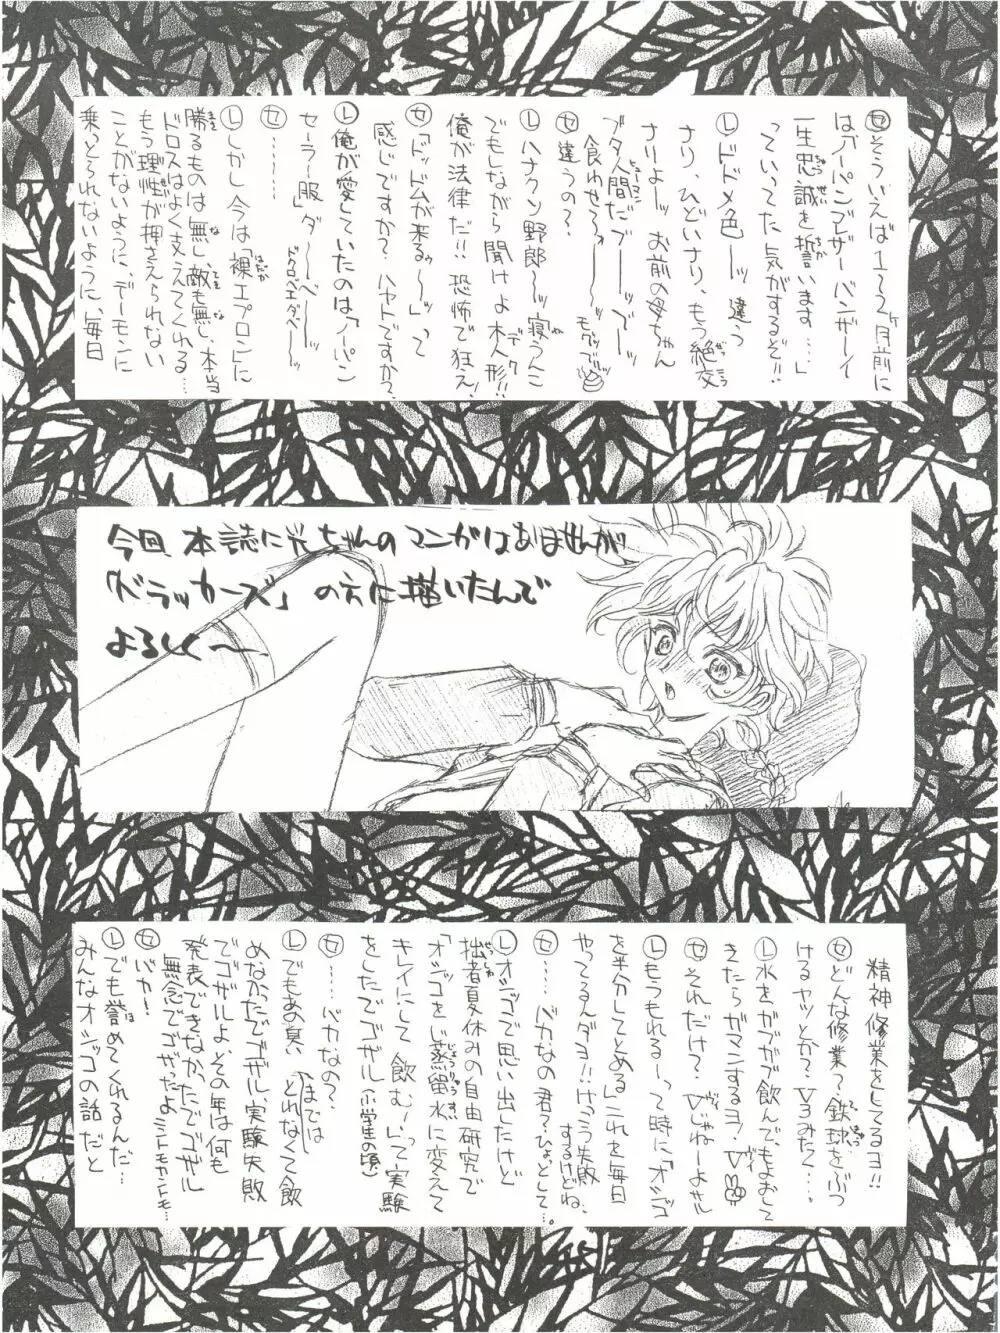 セ そういえば1〜2ヶ月前に
は「ノーパンブレザーバンザーイ
一生忠誠を誓います……」
っていってた気がするぞ!!
L ドドメ色ーーッ 違う
ナリ、ひどいナリ、もう絶交
ナリよーー お前の母ちゃん
ブタ人間だブーーでーー
食わせろっーー〜
セ 違うの?
L ハナクソ野郎ーーッ 寝うんこ
でもしながら聞けよ木人形!!
俺が法律だ!! 恐怖で狂え!
セ「ドッドムが来るゥ〜〜」って
感じですか? ハヤトですか?
L 俺が愛していたのは「ノーパン
セーラー服」ダーーベーーッ
セ ………
L しかし今は裸エプロンに
勝るものは無し、敵も無し、本当
ドロスはよく支えてくれる…
もう理性が押さえられない
ことがないように、デーモンに
乗っとられないように、毎日
今回 本誌に光ちゃんの マンガはありませんが
「ドラッカーズ」の方に描いたんで
よろしく〜
精神修業をしてるヨ!!
セ どんな修業? 鉄球をぶつ
けるヤツとか? V3みたく…。
L 水をガブガブ飲んで、もよおして
きたらガマンするヨ・V
セ それだけ?・Vじゃねーよサル
L もうもれる〜って時に「オシッコ
を半分してとめる」これを毎日
やってるんダヨ!! けっこう失敗
するけどね、
セ ……バカなの君? ひょっとして…。
L オシッコで思い出したけど
拙者夏休みの自由研究で
「オシッコをじょうりゅうすい蒸留水に変えて
キレイにして飲む!」って実験
をしたでゴザル(小学生の頃)
セ ……バカなの?
L でもあの臭いまではとれなくて飲
めなかったでゴザル 実験失敗
でゴザルよ、その年は何も
発表できなかったでゴザル
無念でゴザったよ
セ バカ!
L でも誉めてくれるんだ…
みんなオシッコの話だと